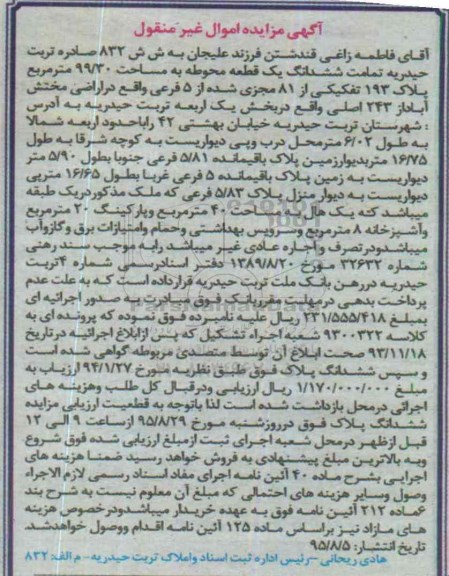 آگهی مزایده اموال غیر منقول
آقای فاطمه زاغی قندشتن فرزند علیجان به ش ش ۸۳۲ صادره تربت
حیدریه تمامت ششدانگ یک قطعه محوطه به مساحت ۹۹/۳۰ مترمربع
پلاک ۱۹۳ تفکیکی از ۸۱ مجزی شده از ۵ فرعی واقع دراراضی مختش
آباداز ۲۴۳ اصلی واقع دربخش یک اربعه تربت حیدریه به آدرس
: شهرستان تربت حیدریه خیابان بهشتی ۴۲ راباحدود اربعه شمالا
به طول ۶/۰۲ مترمحل درب وپی دیواریست به کوچه شرقا به طول
۱۶/۷۵ متربدیوارزمین پلاک باقیمانده ۵/۸۱ فرعی جنوبا بطول ۵/۹۰ متر
دیواریست به زمین پلاک باقیمانده ۵ فرعی غربا بطول ۱۶/۶۵ مترپی
دیواریست به دیوار منزل پلاک ۵/۸۳ فرعی که ملک مذکوردریک طبقه
میباشد که یک هال به مساحت ۴۰ مترمربع وپارکینگ ۲۰ مترمربع
وآشپزخانه ۸ مترمربع وسرویس بهداشتی وحمام وامتیازات برق وگازوآب
میباشدودرتصرف واجاره عادی غیر میباشد رابه موجب سند رهنی
شماره ۳۲۶۳۲ مورخ ۱۳۸۹/۸/۲۰ دفتر اسنادرسمی شماره ۴تربت
حیدریه دررهن بانک ملت تربت حیدریه قرارداده است که به علت عدم
پرداخت بدهی درمهلت مقرربانک فوق مبادرت به صدور اجرائیه ای
بمبلغ ۲۳۱/۵۵۵/۴۱۸ ریال علیه نامبرده فوق نموده که پرونده ای به
کلاسه ۹۳۰۰۳۲۲ شعبه اجراء تشکیل که پس ازابلاغ اجرائیه درتاریخ
۹۳/۱۱/۱۸ صحت ابلاغ آن توسط متصدی مربوطه گواهی شده است
و سپس ششدانگ پلاک فوق طبق نظریه مورخ ۹۴/۱/۲۷ ارزیاب به
مبلغ ۱/۱۷۰/۰۰۰/۰۰۰ ریال ارزیابی ودرقبال کل طلب وهزینه های
اجرائی درمحل بازداشت شده است لذا باتوجه به قطعیت ارزیابی مزایده
ششدانگ پلاک فوق درروزشنبه مورخ ۹۵/۸/۲۹ ازساعت ۹ الی ۱۲
قبل ازظهر درمحل شعبه اجرای ثبت ازمبلغ ارزیابی شده فوق شروع
وبه بالاترین مبلغ پیشنهادی به فروش خواهد رسید ضمنا هزینه های
اجرایی بشرح ماده ۴۰ آئین نامه اجرای مفاد اسناد رسمی لازم الاجراء
وصول وسایر هزینه های احتمالی که مبلغ آن معلوم نیست به شرح بند
۶ماده ۲۱۲ آئین نامه فوق به عهده خریدار میباشدودرخصوص هزینه
های مازاد نیز براساس ماده ۱۲۵ آئین نامه اقدام ووصول خواهدشد.
تاریخ انتشار: ۹۵/۸/۵
هادی ریحانی –رئیس اداره ثبت اسناد واملاک تربت حیدریه– م الف: ۸۳۲